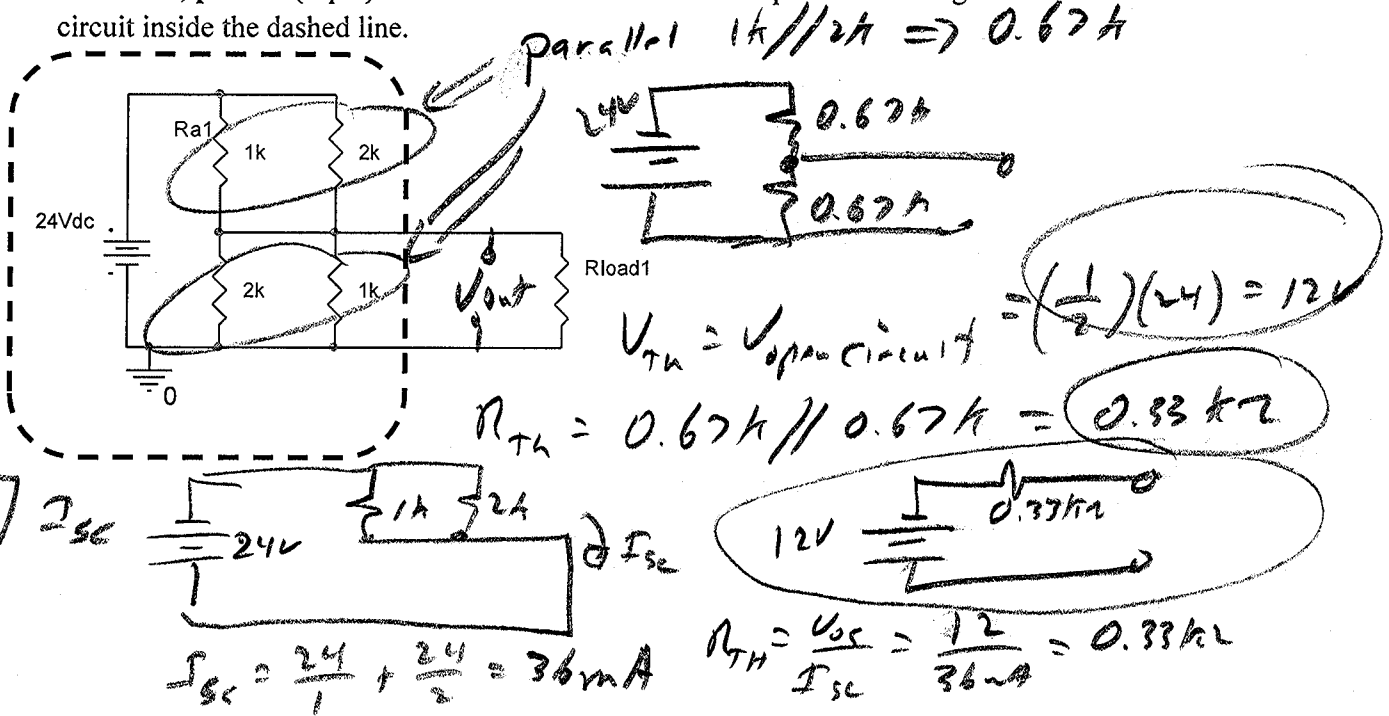 circuit inside the dashed line.
parallel 1k//2k => 0.67k
Ra1
1k
2k
24Vdc
2k
1k
Vout
Rload1
0
24V
0.67k
0.67k
V_TH = V open circuit = (1/2)(24) = 12V
R_Th = 0.67k // 0.67k = 0.33 kΩ
I_sc
24V
1k
2k
I_sc
12V
0.33kΩ
I_sc = 24/1 + 24/2 = 36mA
R_TH = V_oc/I_sc = 12/36mA = 0.33kΩ